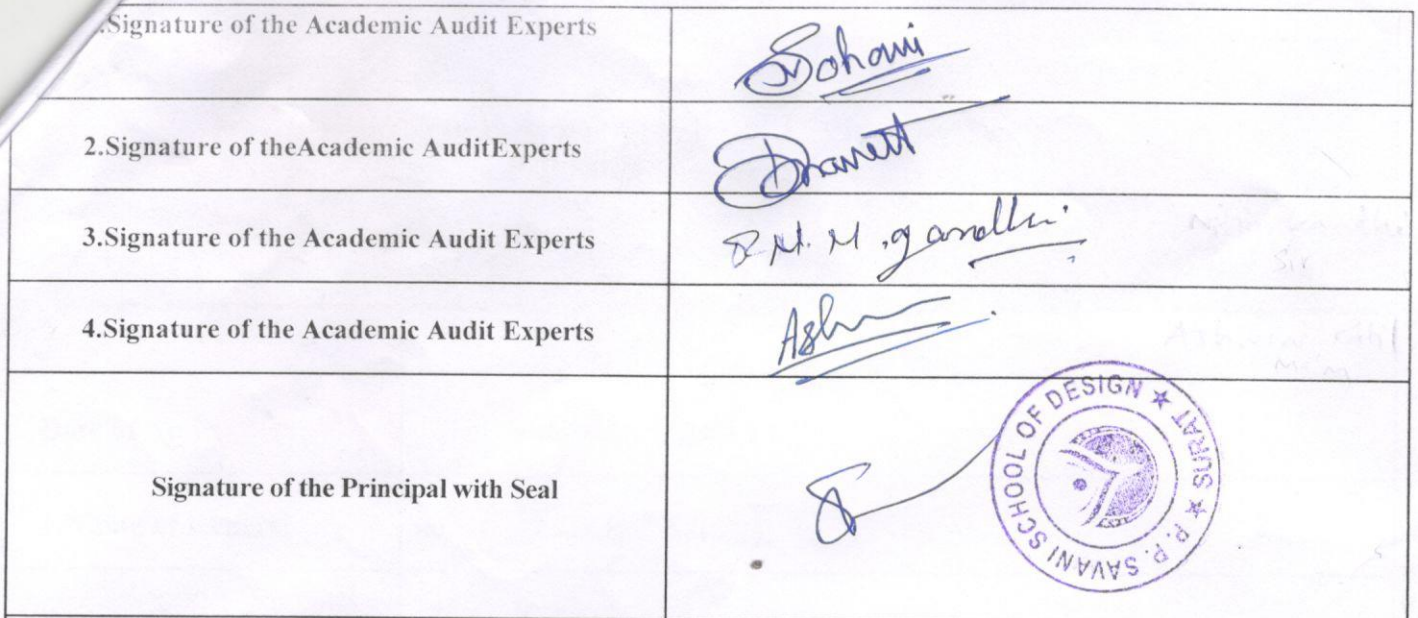 .Signature of the Academic Audit Experts
Sohani
2.Signature of theAcademic AuditExperts
3.Signature of the Academic Audit Experts
M. gandhi
4.Signature of the Academic Audit Experts
Signature of the Principal with Seal
P. P. SAVANI SCHOOL OF DESIGN ★ SURAT ★